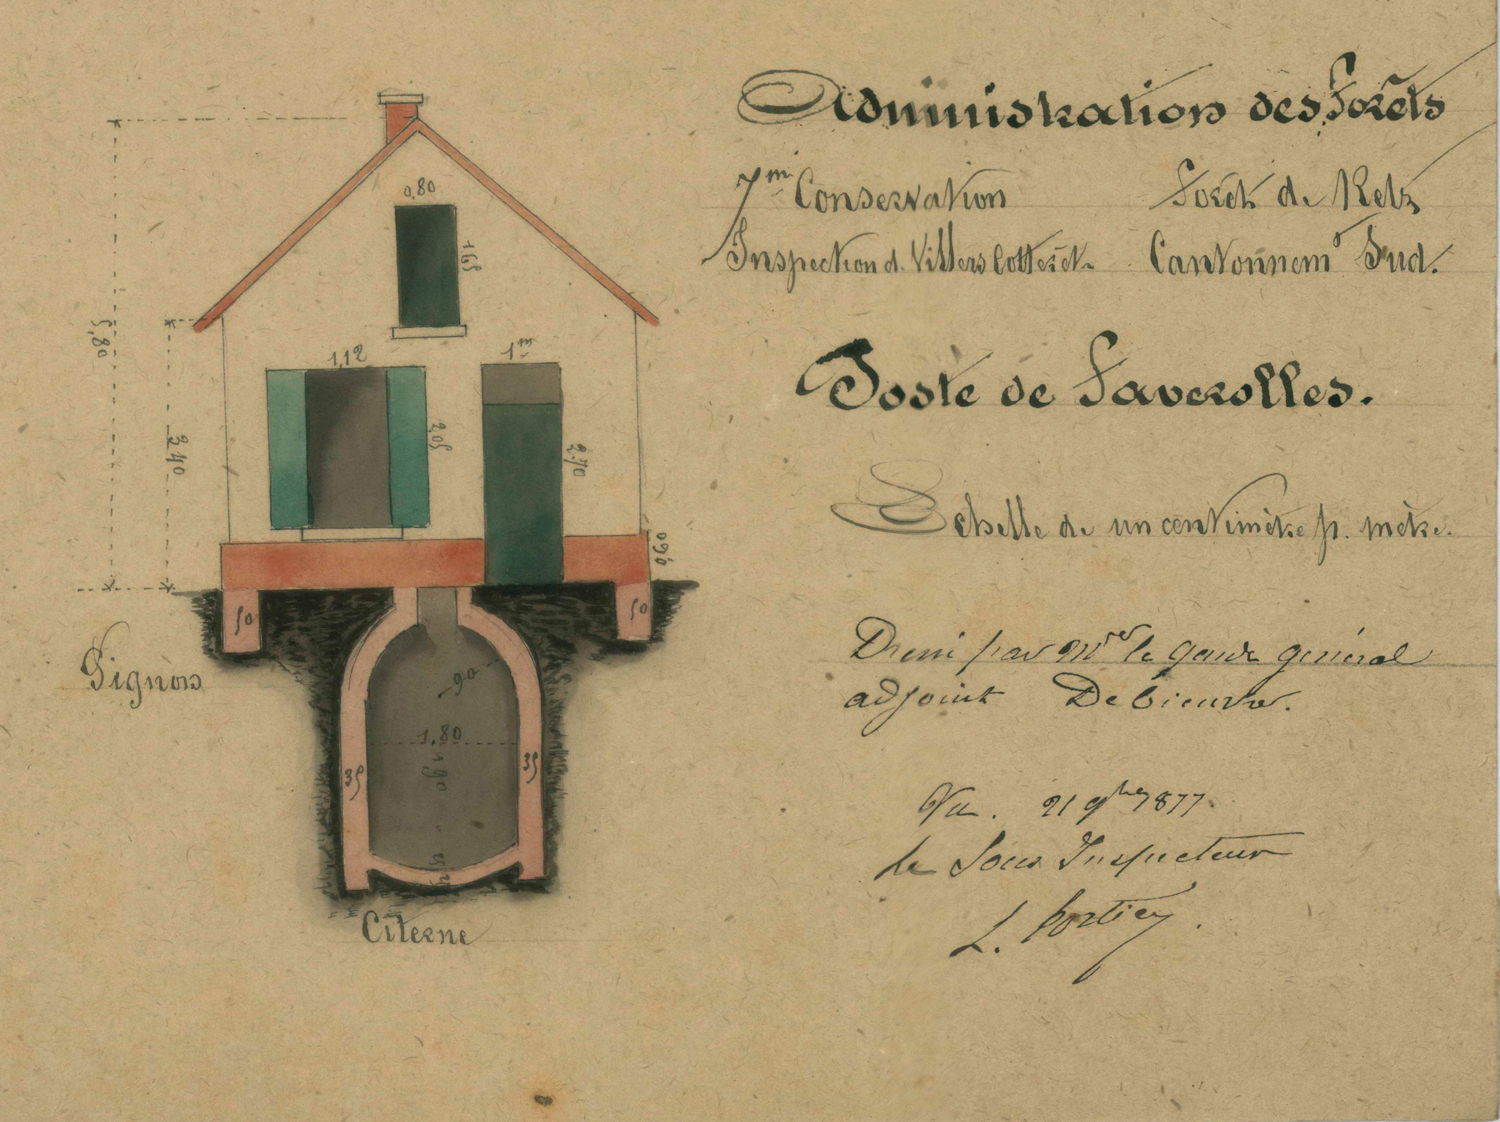 Administration des Forêts
7me Conservation Forêt de Retz
Inspection d. Villers Cotterêt. Cantonnemt Sud.
Poste de Faverolles.
Echelle de un centimètre p. mètre.
Dressé par Mr le garde général
adjoint De Bieuvre.
Vu. 21 9bre 1877.
Le Sous Inspecteur
L.
0,80
1,65
5,80
1,12
1m
2,05
2,70
3,40
0,60
50
50
Pignon
90
1,80
1,90
35
35
Citerne